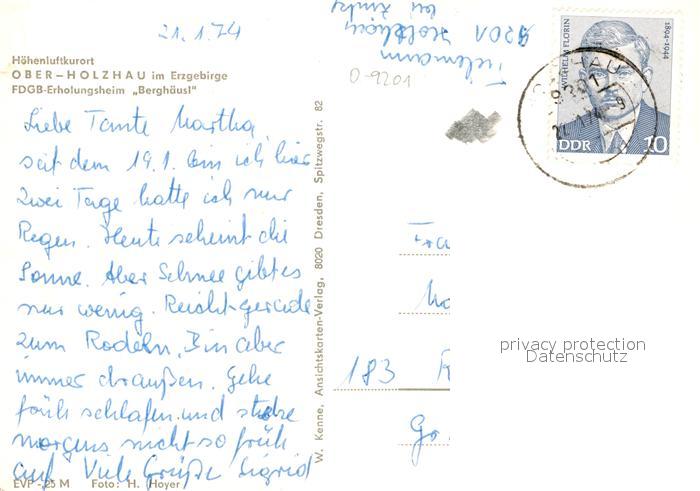 21.1.74
Höhenluftkurort
OBER-HOLZHAU im Erzgebirge
FDGB-Erholungsheim „Berghäusl"
Liebe Tante Martha,
seit dem 19.1. bin ich hier
Zwei Tage hatte ich nur
Regen. Heute scheint die
Sonne. Aber Schnee gibt es
nur wenig. Reicht gerade
zum Rodeln. Bin aber
immer draußen. Gehe
früh schlafen und stehe
morgens nicht so früh
auf. Viele Grüße Sigrid
EVP -,25 M Foto: H. Hoyer
W. Kenne, Ansichtskarten-Verlag, 8020 Dresden, Spitzwegstr. 82
9201 Holzhau
O-9201
WILHELM FLORIN
1894-1944
DDR 10
9201
183
privacy protection
Datenschutz